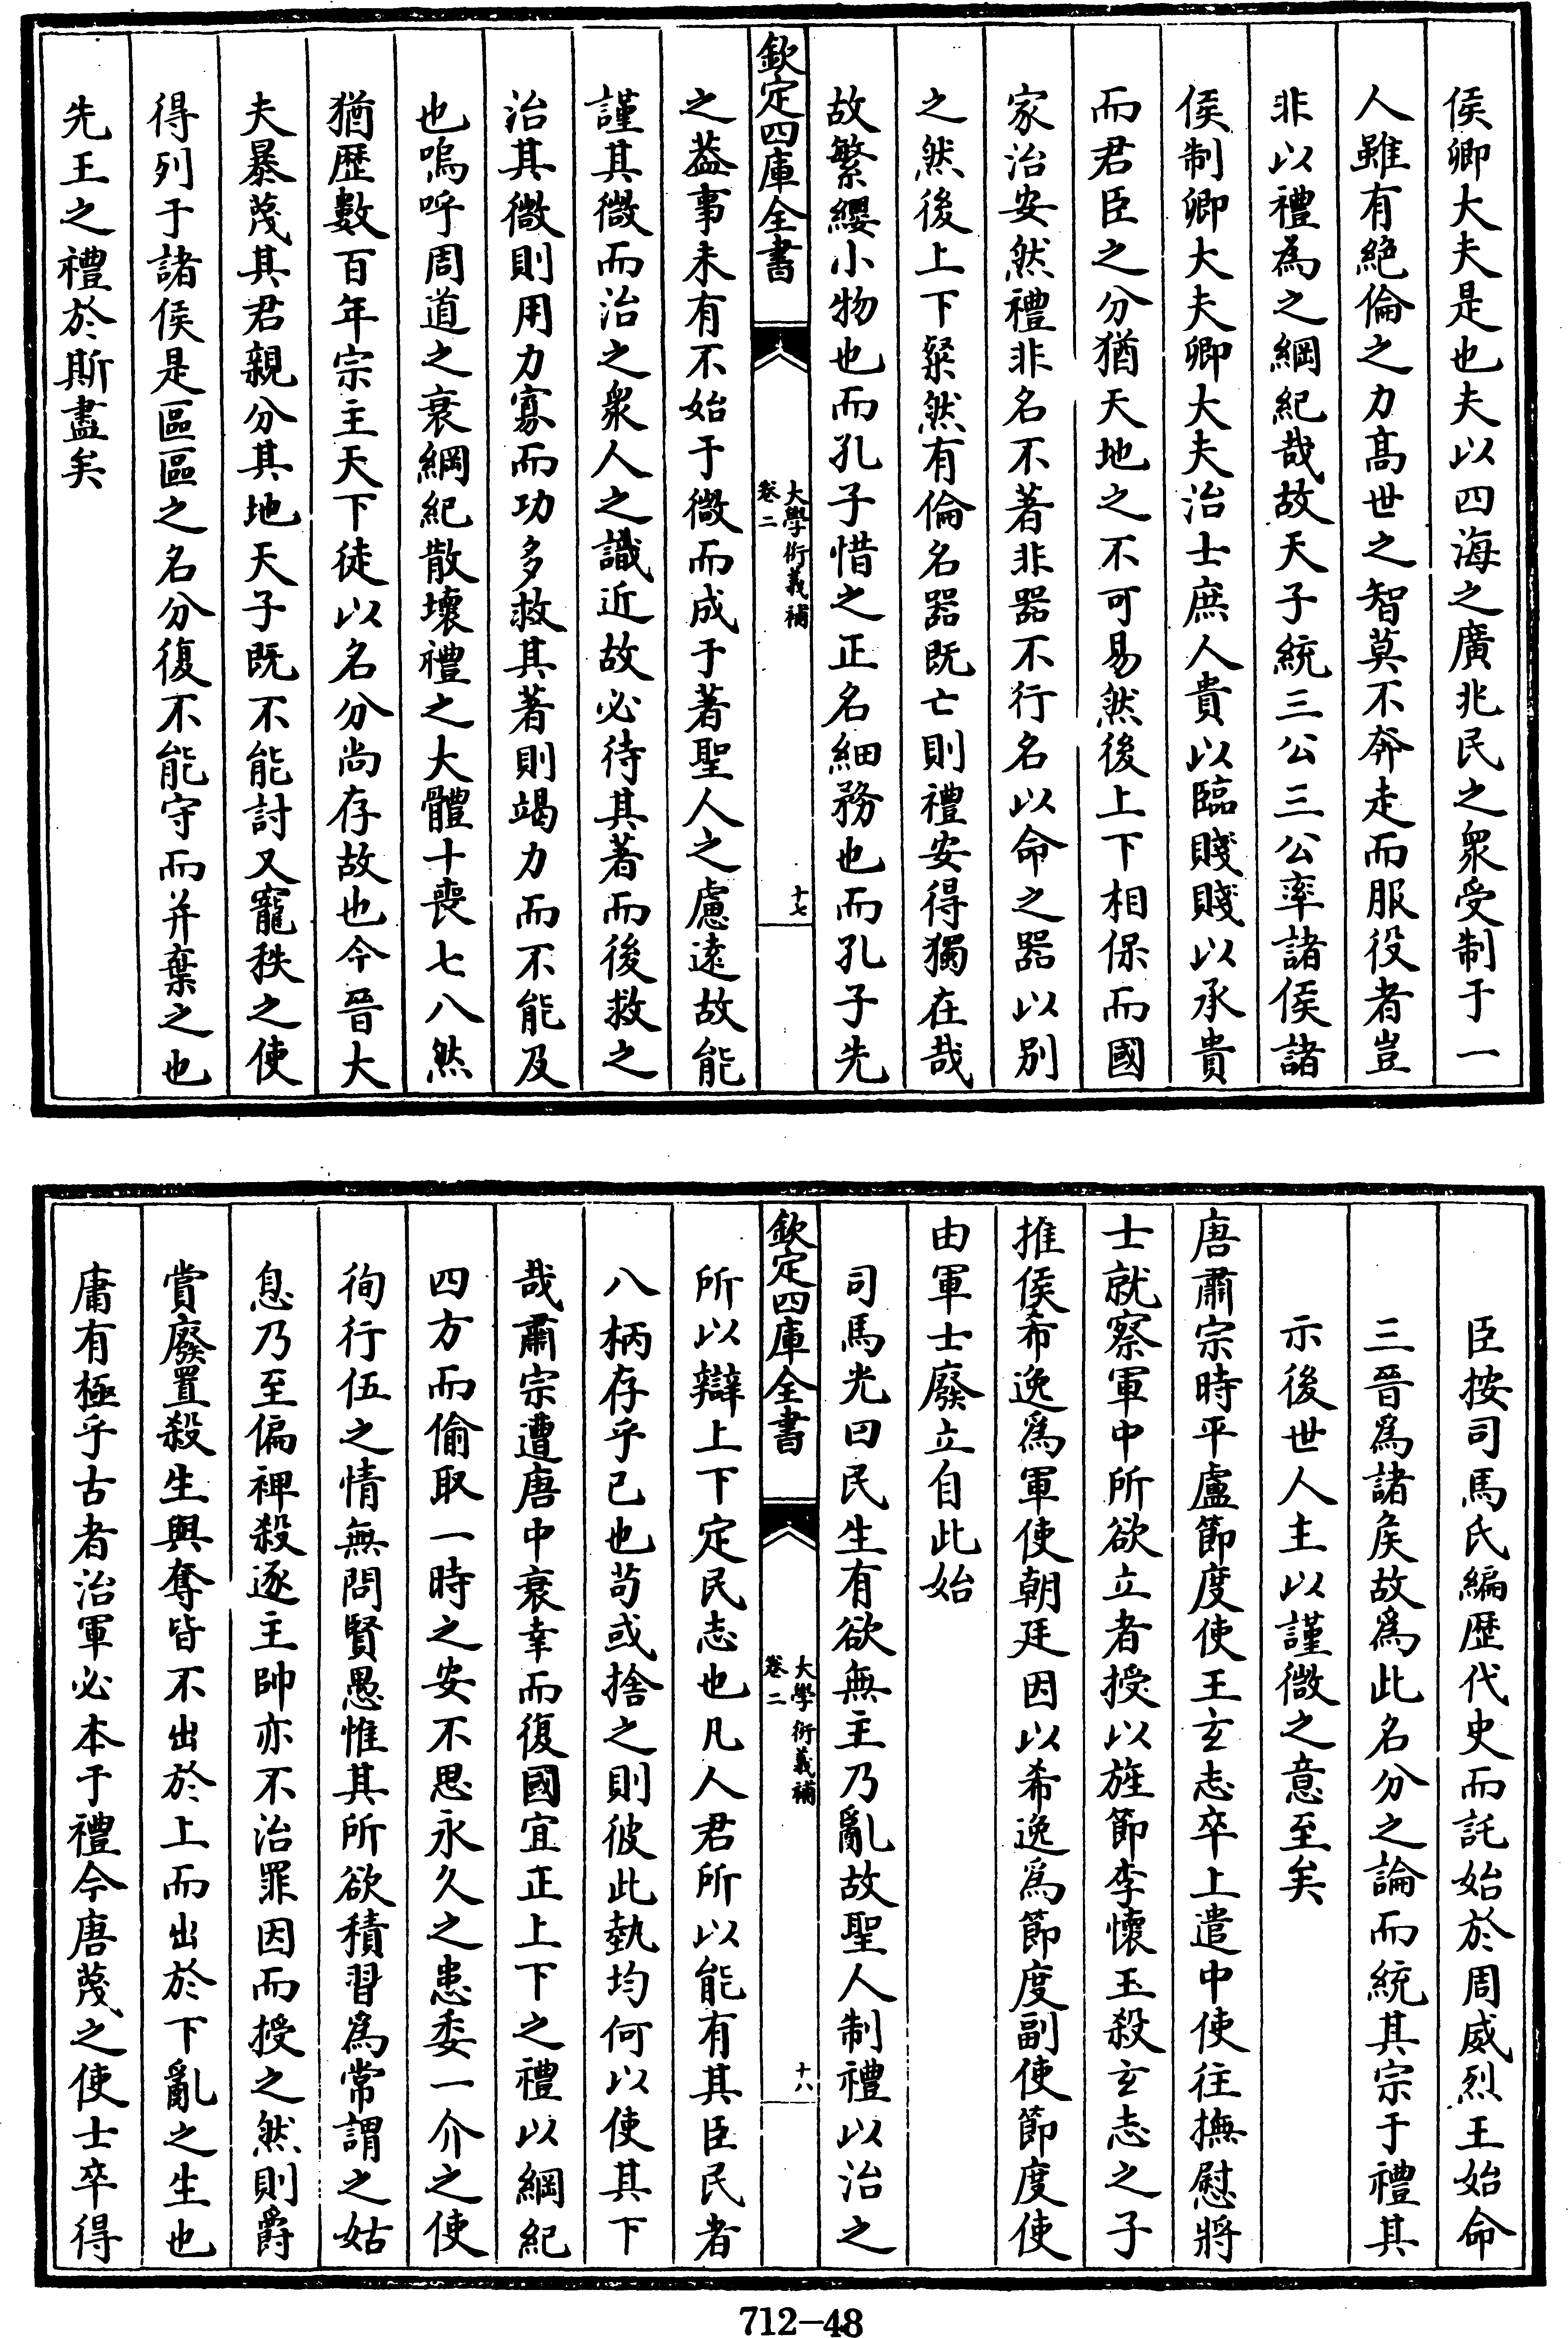 侯卿大夫是也夫以四海之廣兆民之衆受制于一
人雖有絶倫之力髙世之智莫不奔走而服役者豈
非以禮為之綱紀哉故天子統三公三公率諸侯諸
侯制卿大夫卿大夫治士庶人貴以臨賤賤以承貴
而君臣之分猶天地之不可易然後上下相保而國
家治安然禮非名不著非器不行名以命之器以别
之然後上下粲然有倫名器既亡則禮安得獨在哉
故繁纓小物也而孔子惜之正名細務也而孔子先
欽定四庫全書
大學衍義補
卷二
十七
之葢事未有不始于微而成于著聖人之慮遠故能
謹其微而治之衆人之識近故必待其著而後救之
治其微則用力寡而功多救其著則竭力而不能及
也嗚呼周道之衰綱紀散壞禮之大體十喪七八然
猶歴數百年宗主天下徒以名分尚存故也今晉大
夫暴蔑其君親分其地天子既不能討又寵秩之使
得列于諸侯是區區之名分復不能守而并棄之也
先王之禮於斯盡矣
臣按司馬氏編歴代史而託始於周威烈王始命
三晉爲諸矦故爲此名分之論而統其宗于禮其
示後世人主以謹微之意至矣
唐肅宗時平盧節度使王玄志卒上遣中使往撫慰將
士就察軍中所欲立者授以旌節李懷玉殺玄志之子
推侯希逸爲軍使朝廷因以希逸爲節度副使節度使
由軍士廢立自此始
司馬光曰民生有欲無主乃亂故聖人制禮以治之
欽定四庫全書
大學衍義補
卷二
十八
所以辯上下定民志也凡人君所以能有其臣民者
八柄存乎已也苟或捨之則彼此埶均何以使其下
哉肅宗遭唐中衰幸而復國宜正上下之禮以綱紀
四方而偷取一時之安不思永久之患委一介之使
徇行伍之情無問賢愚惟其所欲積習爲常謂之姑
息乃至偏裨殺逐主帥亦不治罪因而授之然則爵
賞廢置殺生與奪皆不出於上而出於下亂之生也
庸有極乎古者治軍必本于禮今唐蔑之使士卒得
712-48